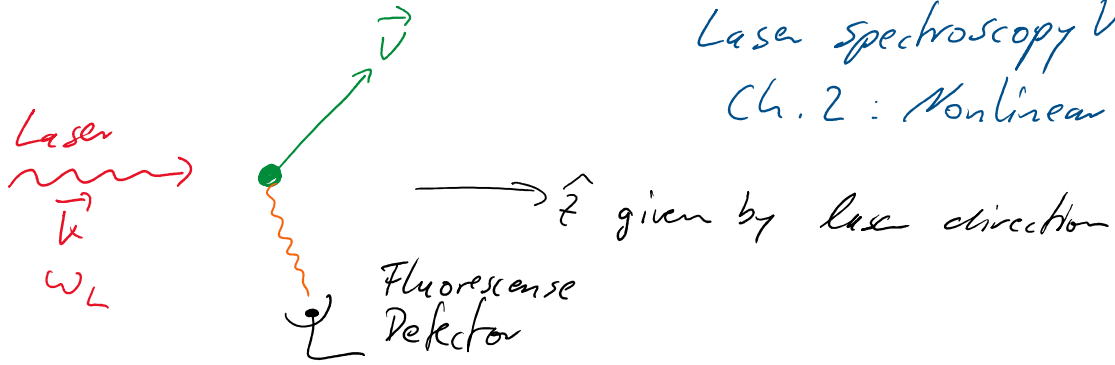 V⃗
Laser spectroscopy V
Ch. 2 : Nonlinear
Laser
k⃗
ω_L
ẑ given by laser direction
Fluorescense
Detector